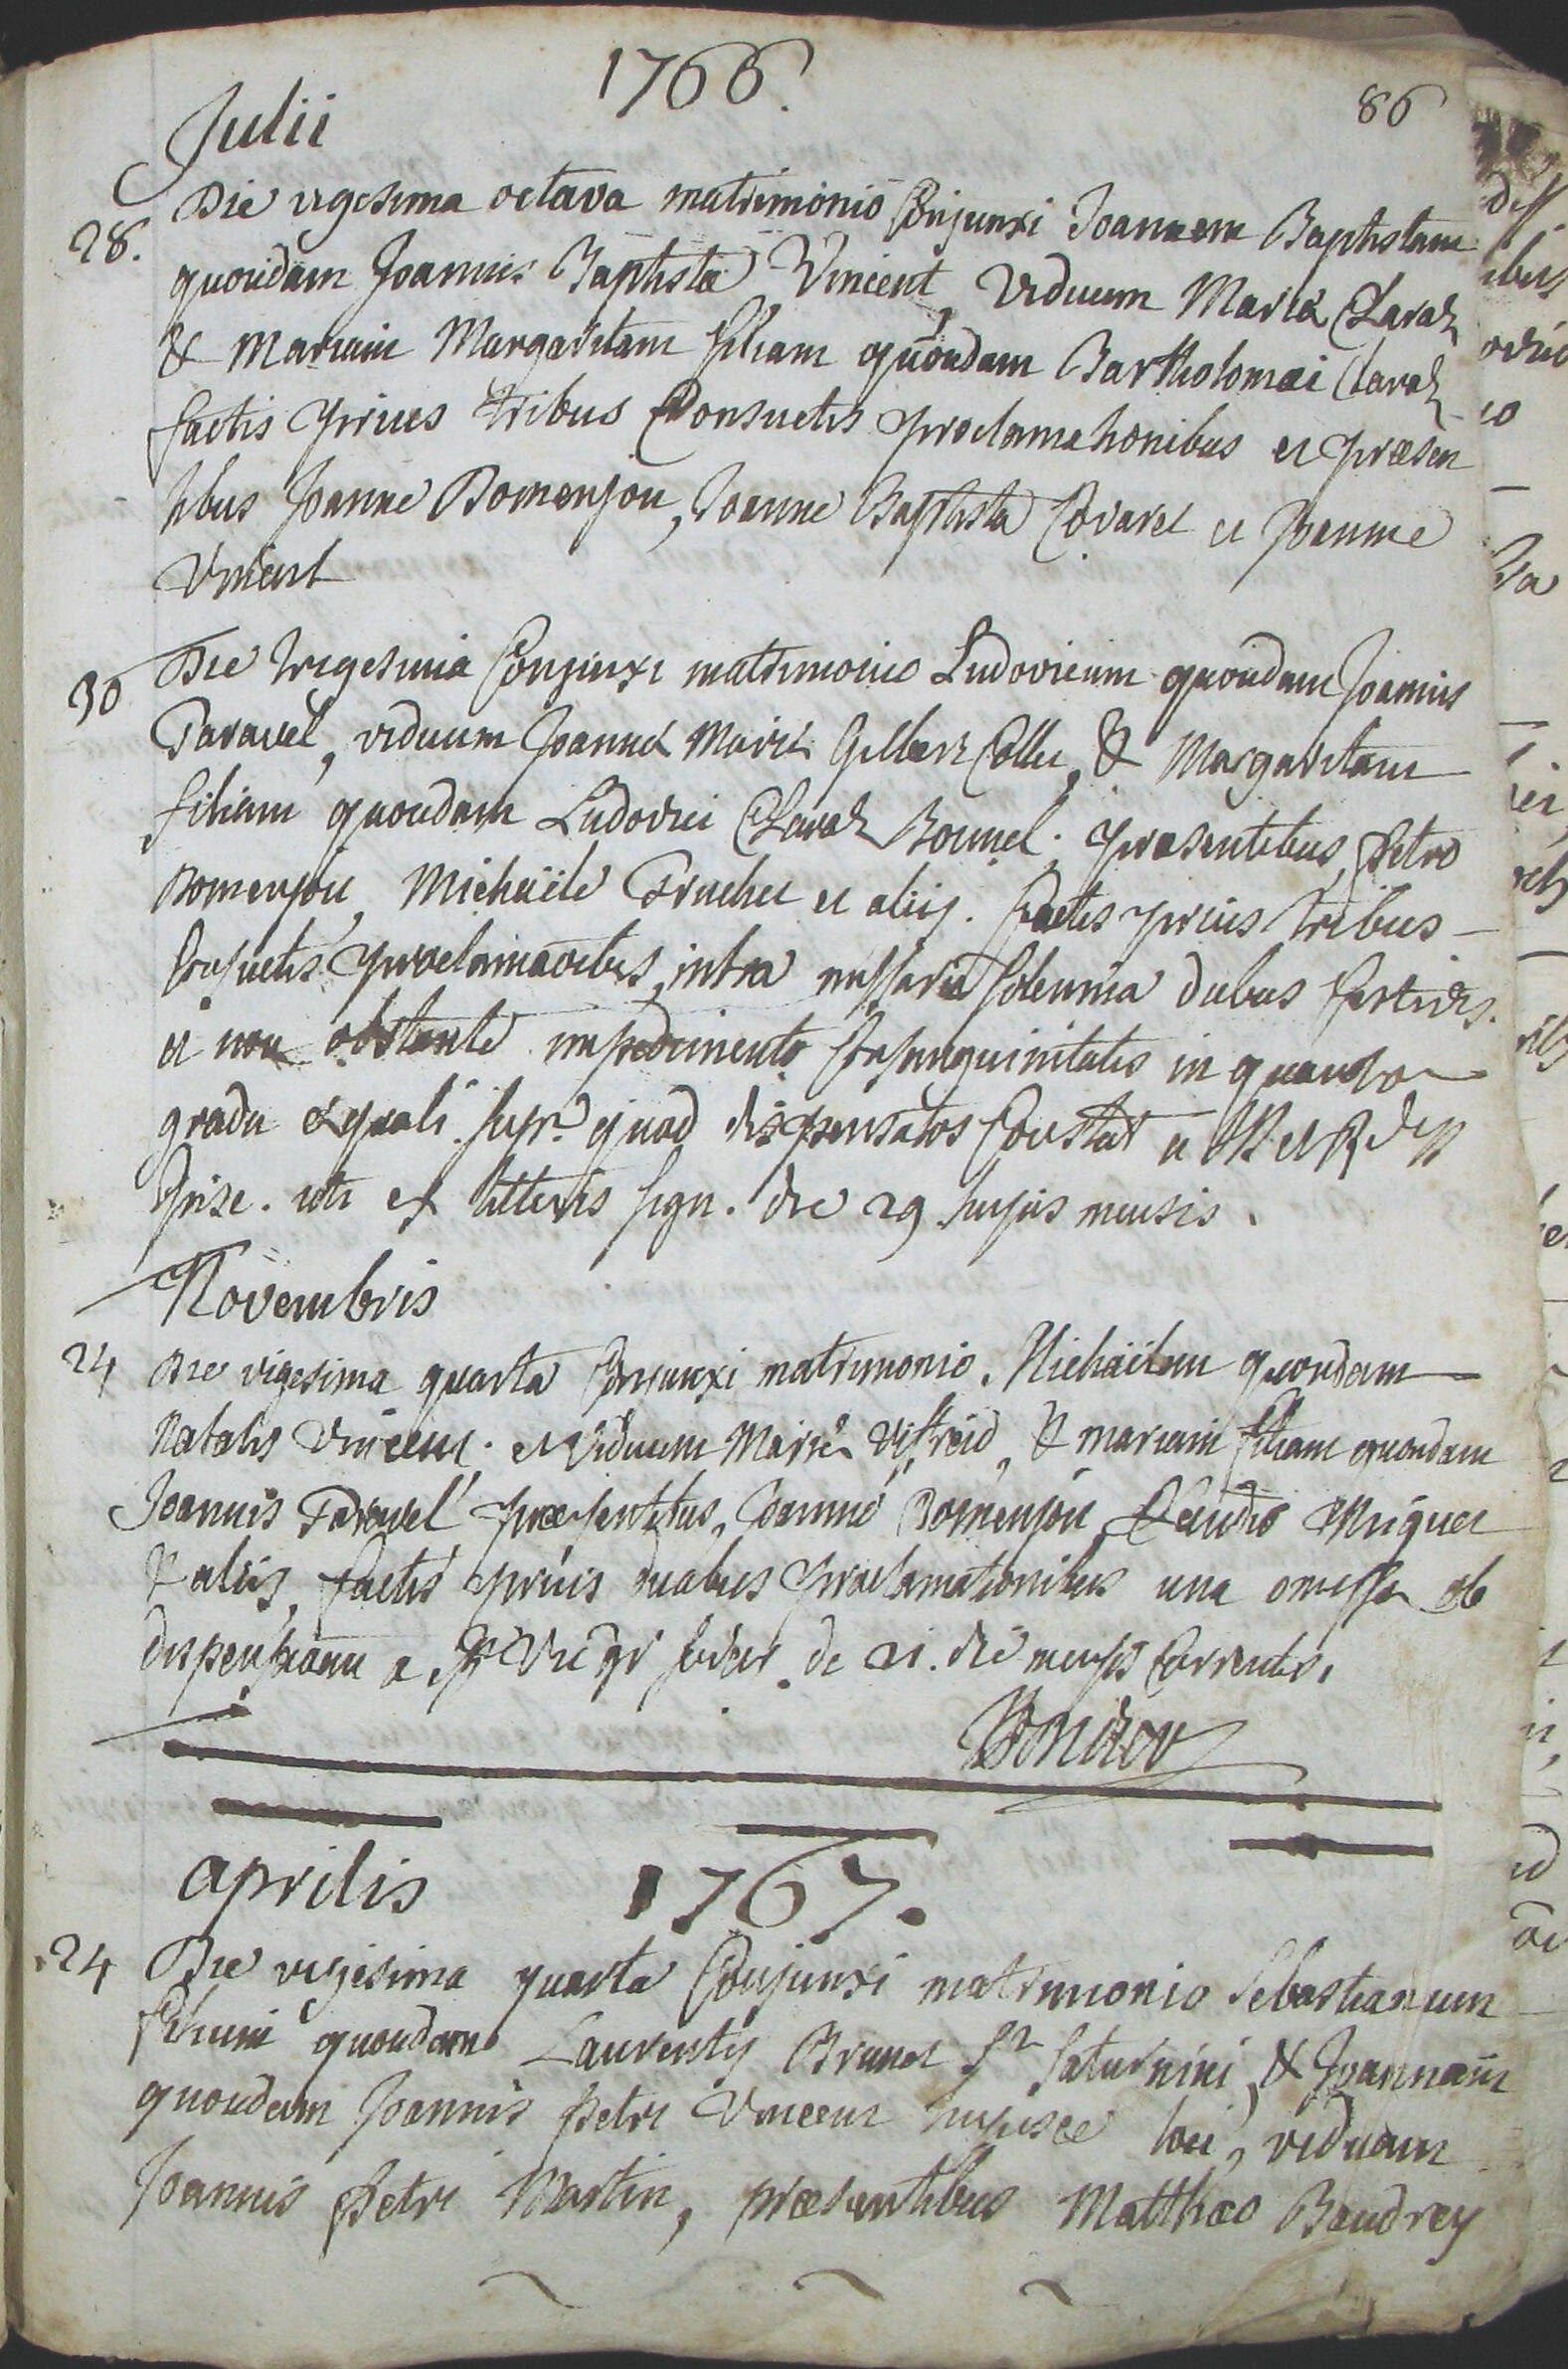 1766.
86
Julii
28. Die vigesima octava matrimonio Conjunxi Joannem Baptistam
quondam Joannis Baptistæ Vincent, viduum Mariæ Claraz
& Mariam Margaritam filiam quondam Bartholomæi Claraz
factis prius tribus Consuetis proclamationibus et præsen
tibus Joanne Domenjou, Joanne Baptista Covarel et Joanne
Vincent
30 Die trigesima Conjunxi matrimonio Ludovicum quondam Joannis
Taravel, viduum Joannæ Mariæ Gilbert Collu, & Margaritam
filiam quondam Ludovici Claraz Bonnel. præsentibus, Petro
Domenjou, Michaële Truchet et aliis. factis prius tribus
Consuetis proclamaōibus, intra missarū solemnia dubus festivis.
et non obstante impedimento Consanguinitatis in quarto
gradu æquali. supr. quod dispensatos Constat a
litteris sign. die 29 hujus mensis.
Novembris
24 Die vigesima quarta Conjunxi matrimonio. Michaëlem quondam
Natalis Vincent. et viduum Mariæ & mariam filiam quondam
Joannis Taravel præsentibus, Joanne Domenjou, Claudio
& aliis, factis prius duabus proclamationibus una omissa ob
dispensaōnem a de 21. die mensis Currentis.
Bondrov
aprilis 1767.
24 Die vigesima quarta Conjunxi matrimonio Sebastianum
filium quondam Laurentij Brunet Sti Saturnini, & Joannam
quondam Joannis Petri Vincent hujusce loci, viduam
Joannis Petri Martin, præsentibus Matthæo Baudrey